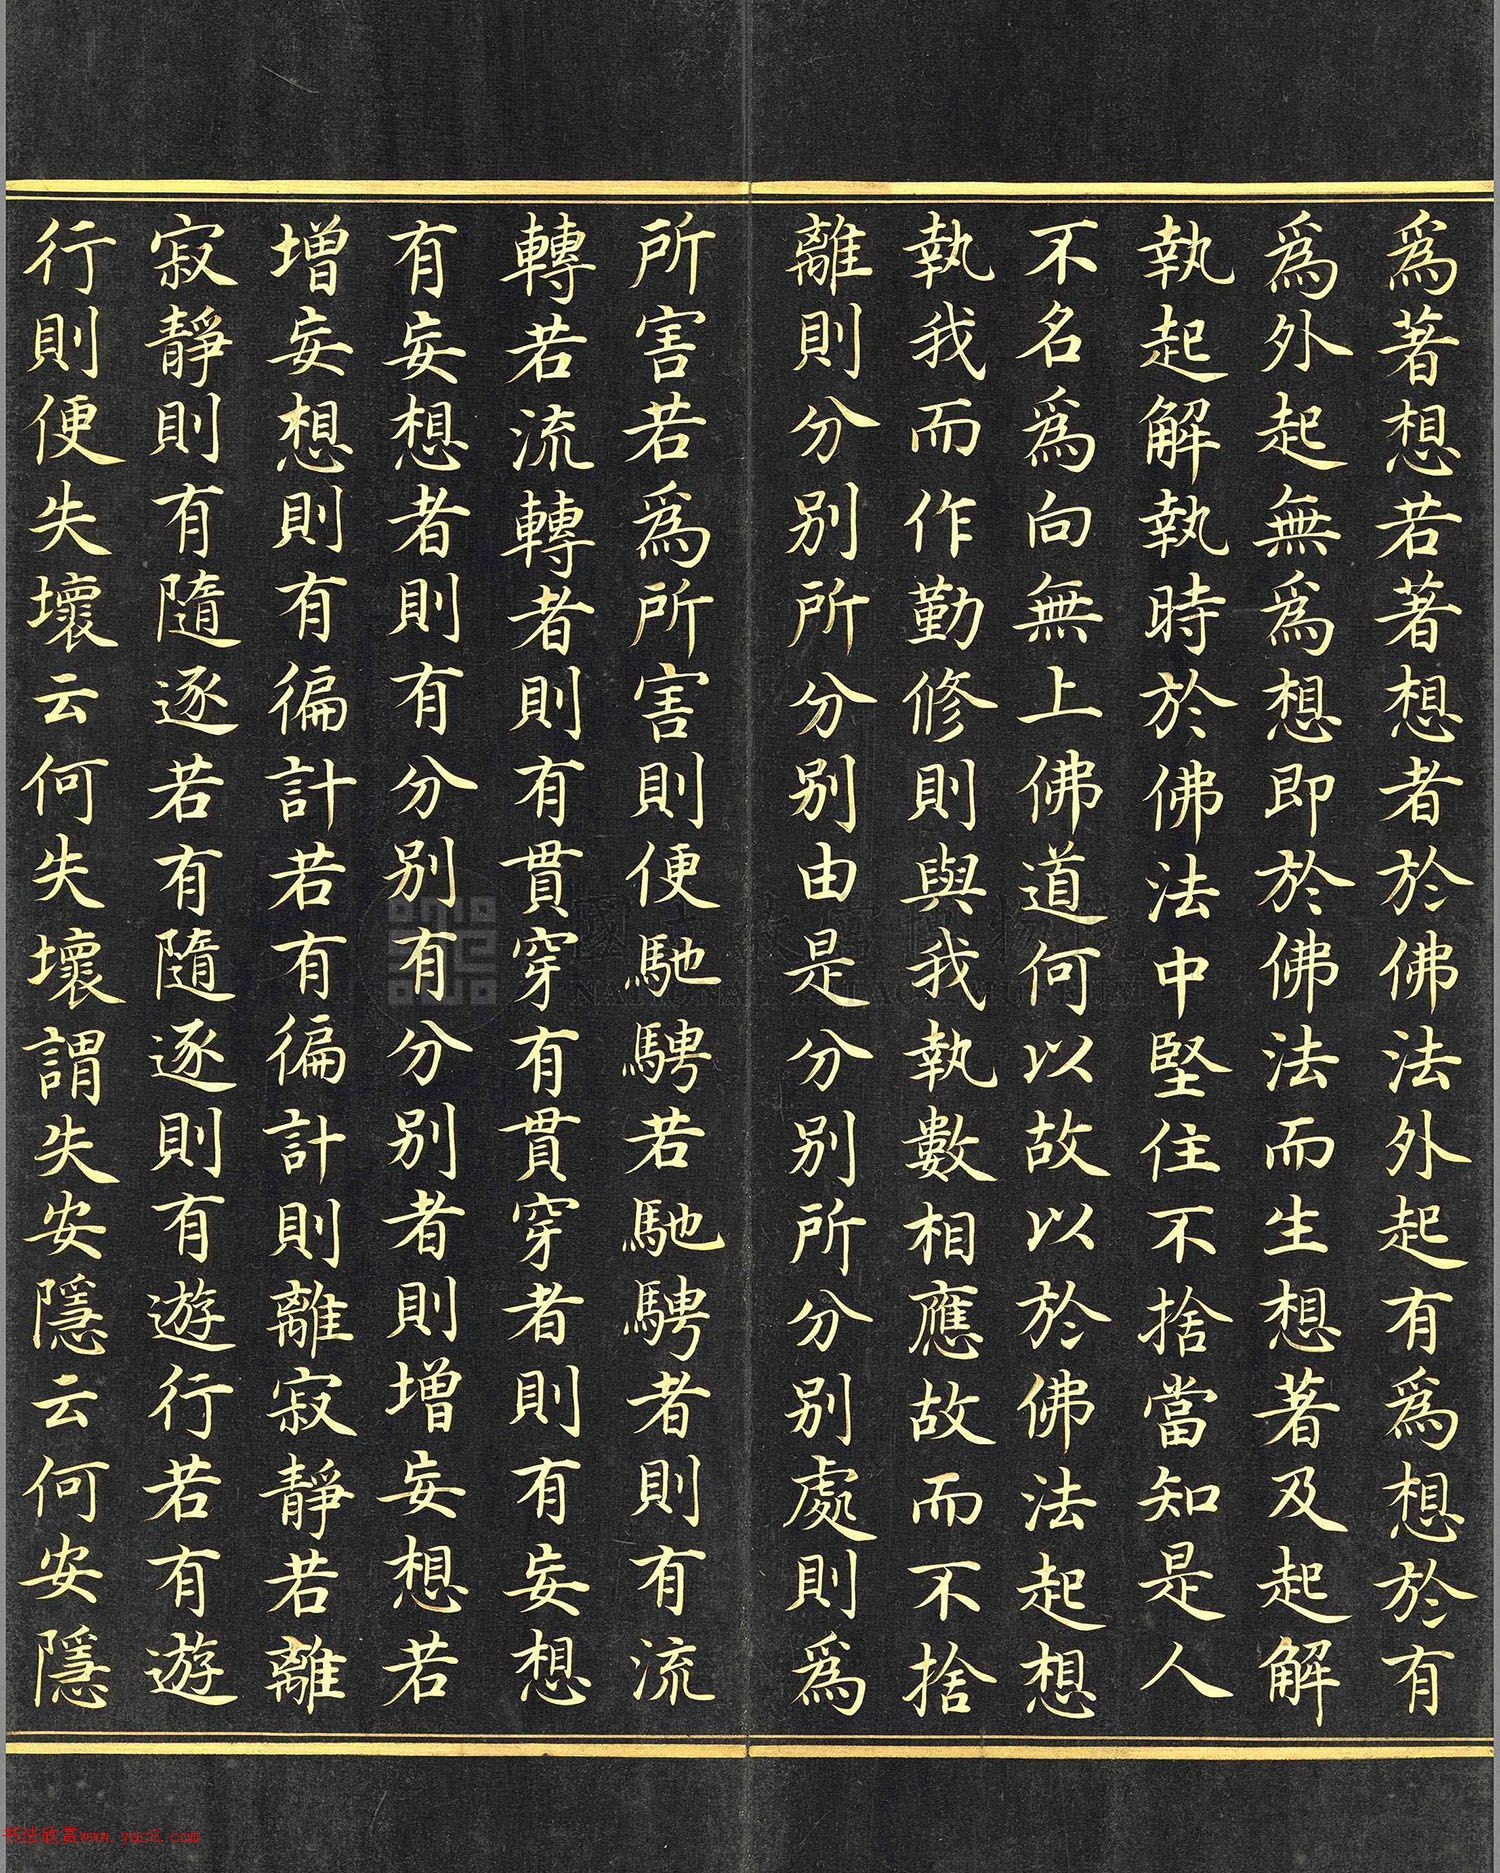 為著想若著想者於佛法外起有為想於有
為外起無為想即於佛法而生想著及起解
執起解執時於佛法中堅住不捨當知是人
不名為向無上佛道何以故以於佛法起想
執我而作勤修則與我執數相應故而不捨
離則分別所分別由是分別所分別處則為
所害若為所害則便馳騁若馳騁者則有流
轉若流轉者則有貫穿有貫穿者則有妄想
有妄想者則有分別有分別者則增妄想若
增妄想則有徧計若有徧計則離寂靜若離
寂靜則有隨逐若有隨逐則有遊行若有遊
行則便失壞云何失壞謂失安隱云何安隱
NATIONAL PALACE MUSEUM
书法欣赏www.yac8.com